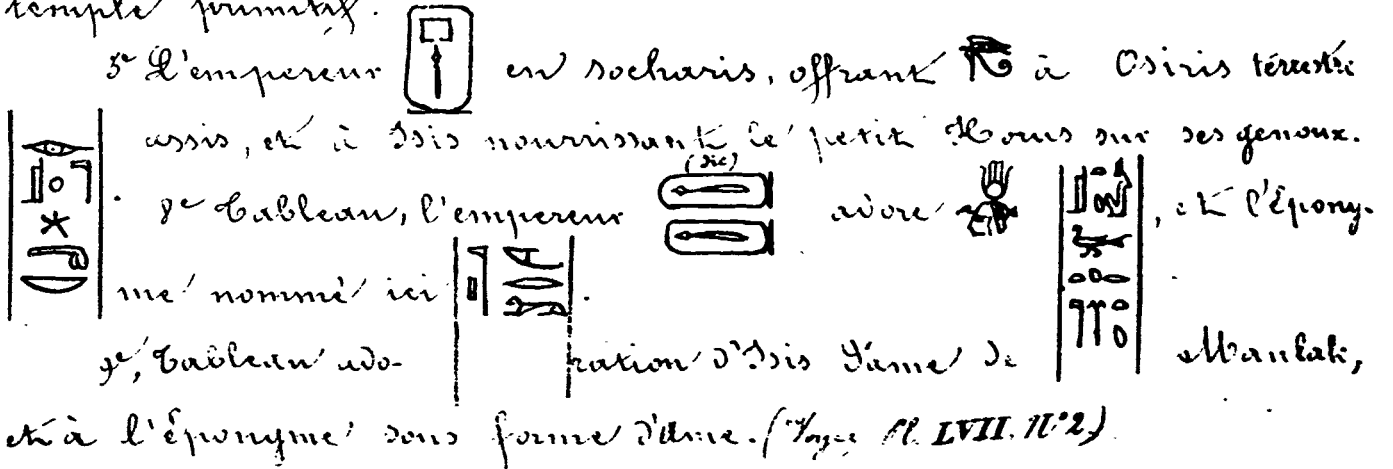 temple primitif.
5e L'empereur en socharis, offrant à Osiris terrestre
assis, et à Isis nourrissant le petit Horus sur ses genoux.
(sic)
8e Tableau, l'empereur adore , et l'Épony-
me nommé ici .
9e, Tableau ado- ration d'Isis Dame de Manlak,
et à l'éponyme sous forme d'Ame. (Voyez Pl. LVII. N°2)